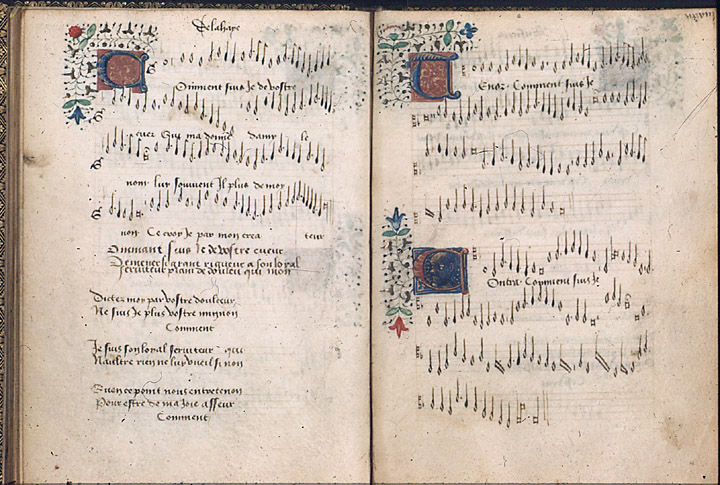 Delahaye
Omment suis Je de vostre
ener Que ma donné dame le
nom luy souuient Il plus de moy
non Ce croy Je par mon crea teur
Comment suis Je de vostre cueur
son loyal
seruiteur plain de douleu qui mon
Dictez moy par vostre doulceur
Ne suis Je plus vostre mignon
Comment
Je suis son loyal seruiteur qui
Naultre rien ne luy vueil si non
Quen ce point nous entretenon
Pour estre de ma Joie asseur
Comment
Enor Comment suis Je
Ontra Comment suis Je